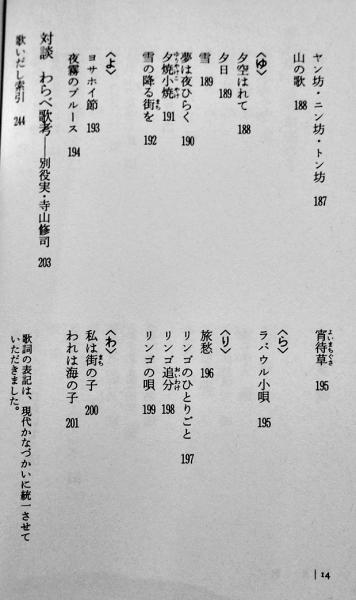 ヤン坊・ニン坊・トン坊 187
山の歌 188
〈ゆ〉
夕空はれて 188
夕日 189
雪 189
夢は夜ひらく 190
夕焼小焼 191
雪の降る街を 192
〈よ〉
ヨサホイ節 193
夜霧のブルース 194
宵待草 195
〈ら〉
ラバウル小唄 195
〈り〉
旅愁 196
リンゴのひとりごと 197
リンゴ追分 198
リンゴの唄 199
〈わ〉
私は街の子 200
われは海の子 201
対談 わらべ歌考——別役実・寺山修司 203
歌いだし索引 244
歌詞の表記は、現代かなづかいに統一させて
いただきました。
14